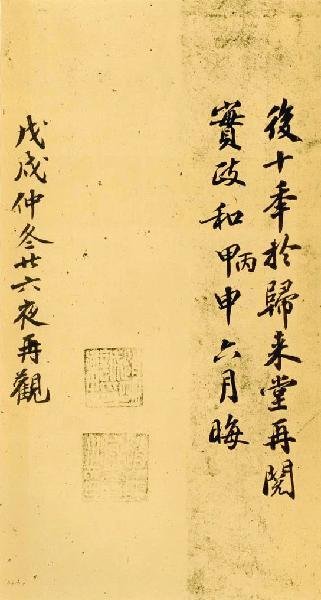 後十秊於歸来堂再閱
實政和甲丙申六月晦
戊戌仲冬廿六夜再觀